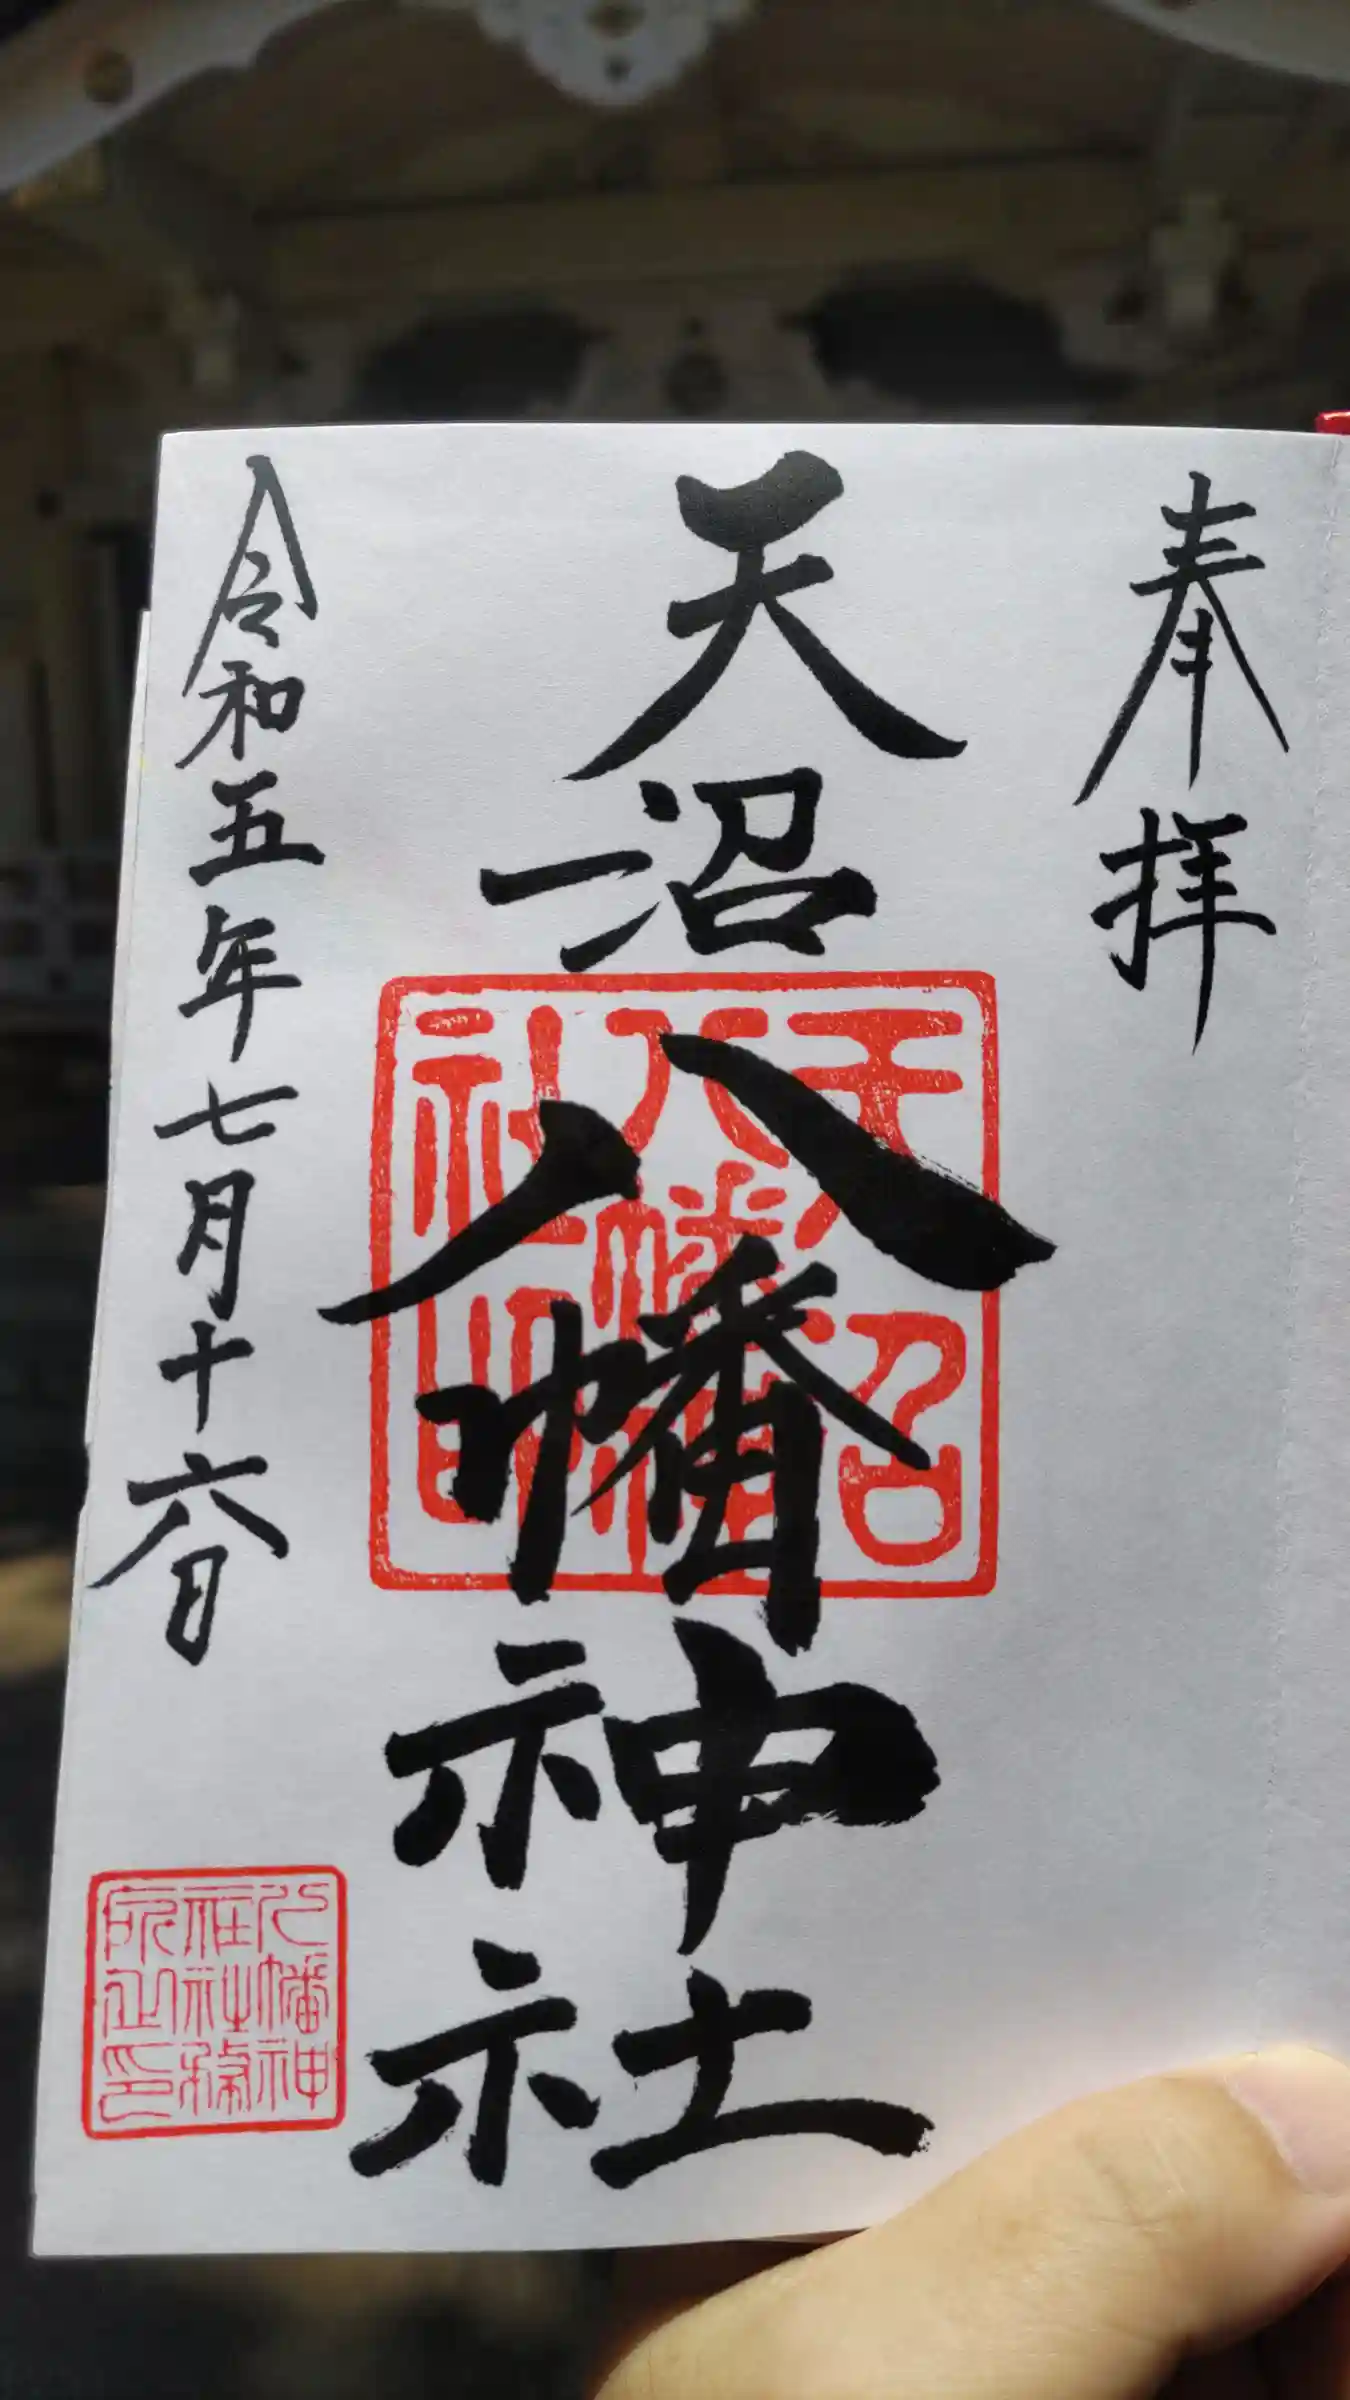 奉拝
天沼八幡神社
天沼八幡神社印
令和五年七月十六日
八幡神社社務所之印